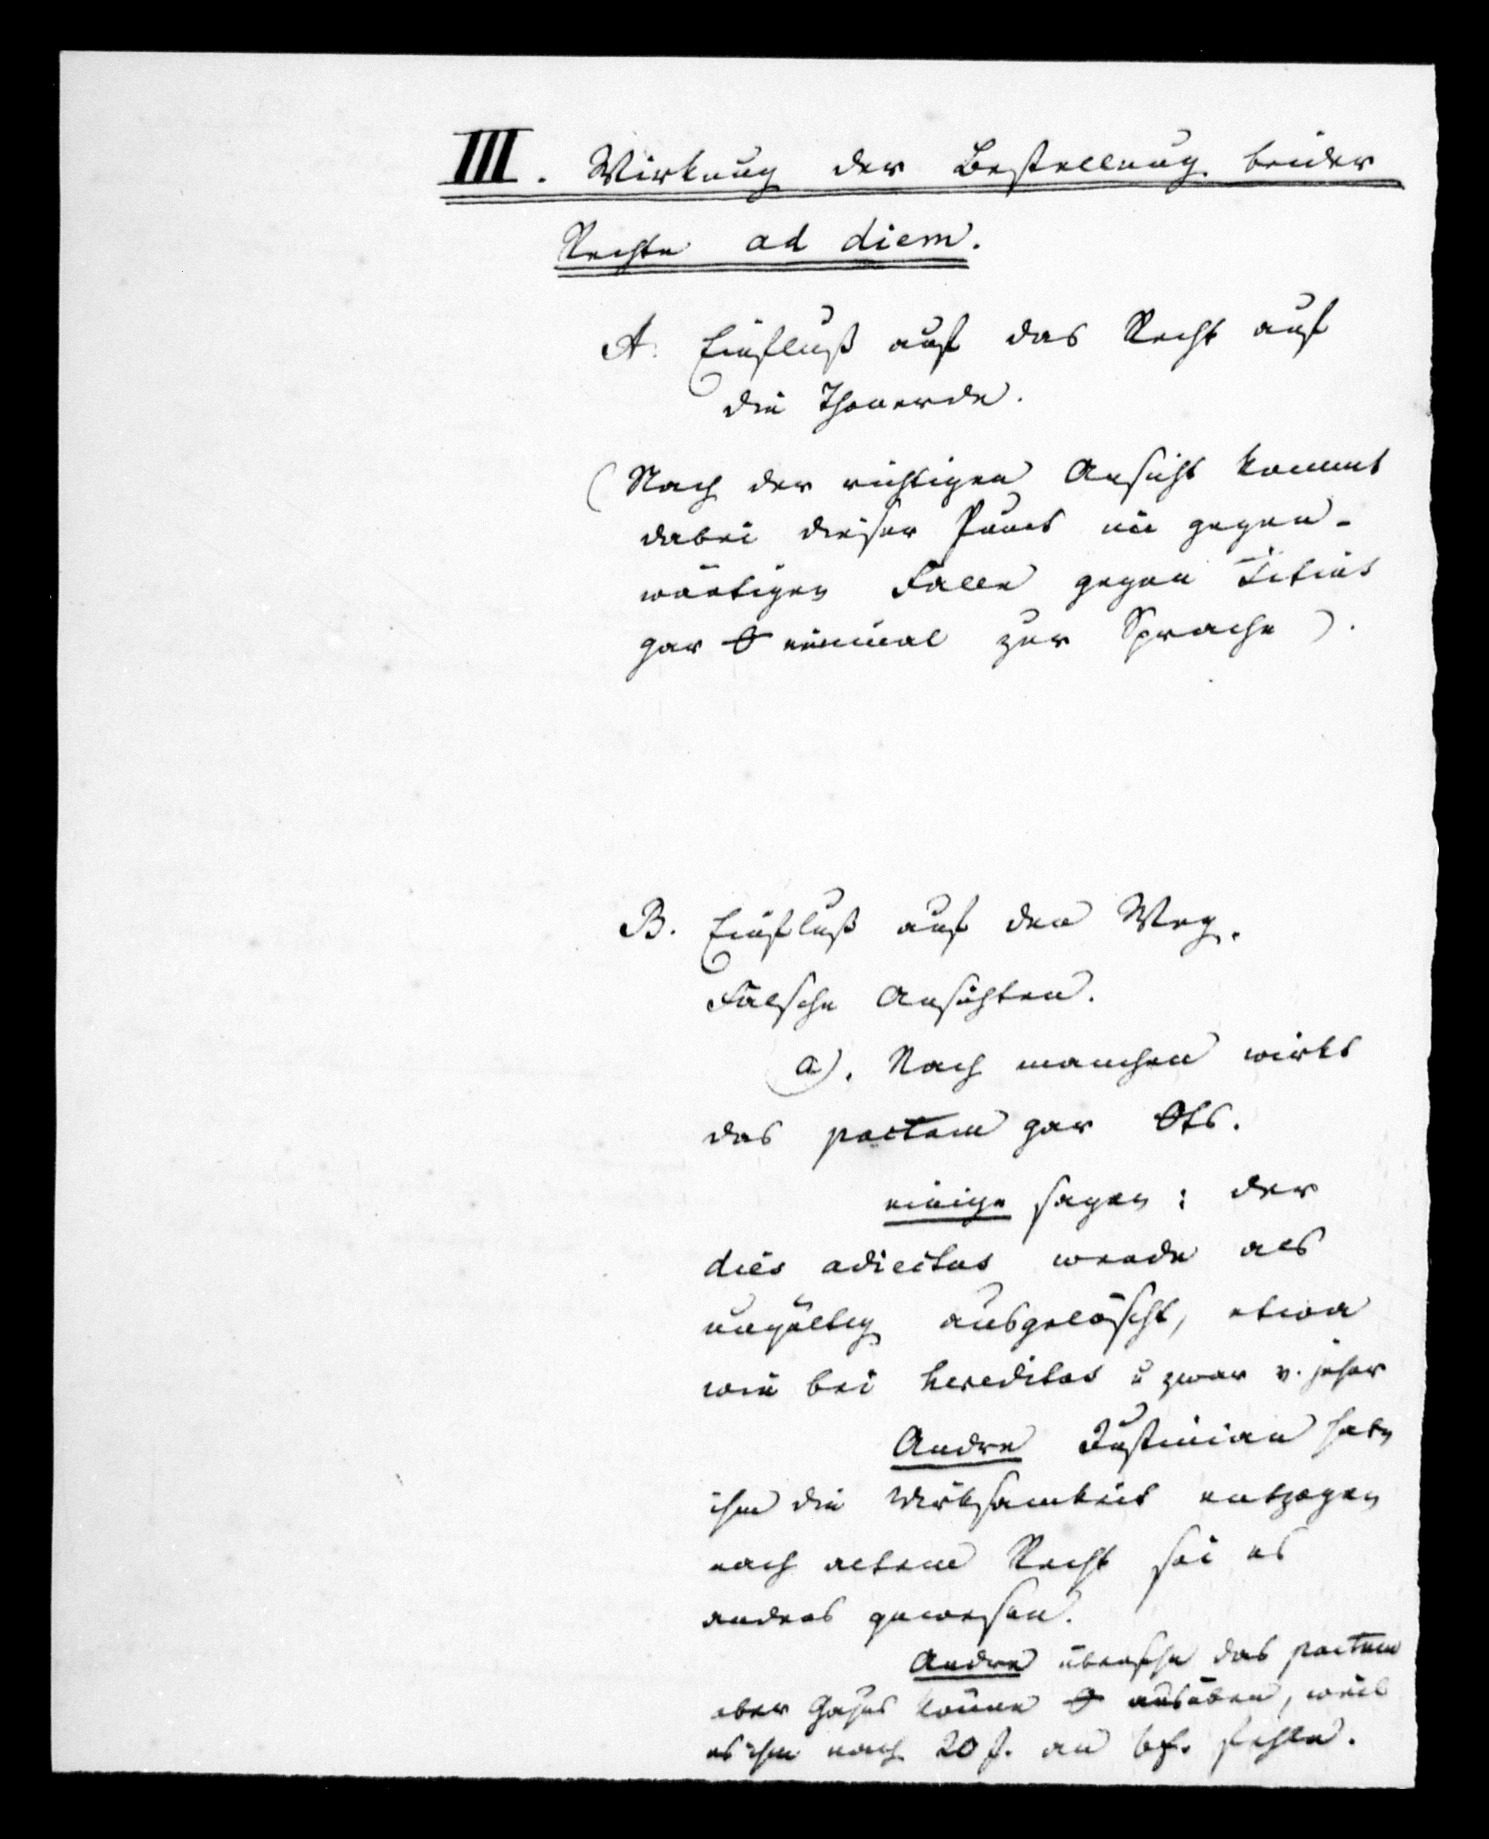 III. Wirkung der Bestellung beider
Rechte ad diem.
A. Einfluß auf das Recht auf
die Thonerde.
(Nach der richtigen Ansicht kommt
dabei dieser Punct im gegen-
wärtigen Falle gegen Titius
gar einmal zur Sprache).
B. Einfluß auf den Weg.
Falsche Ansichten.
a). Nach manchen wirkt
das pactum gar
einige sagen: der
dies adiectus werde als
ungültig ausgelöscht, etwa
wie bei hereditas u zwar v. jeher
Andre Justinian habe
ihm die Wirksamkeit entzogen
nach altem Recht sei es
anders gewesen.
Andre das pactum
aber Gajus könne ausüben, weil
es ihm nach 20 J. an bf. fehle.